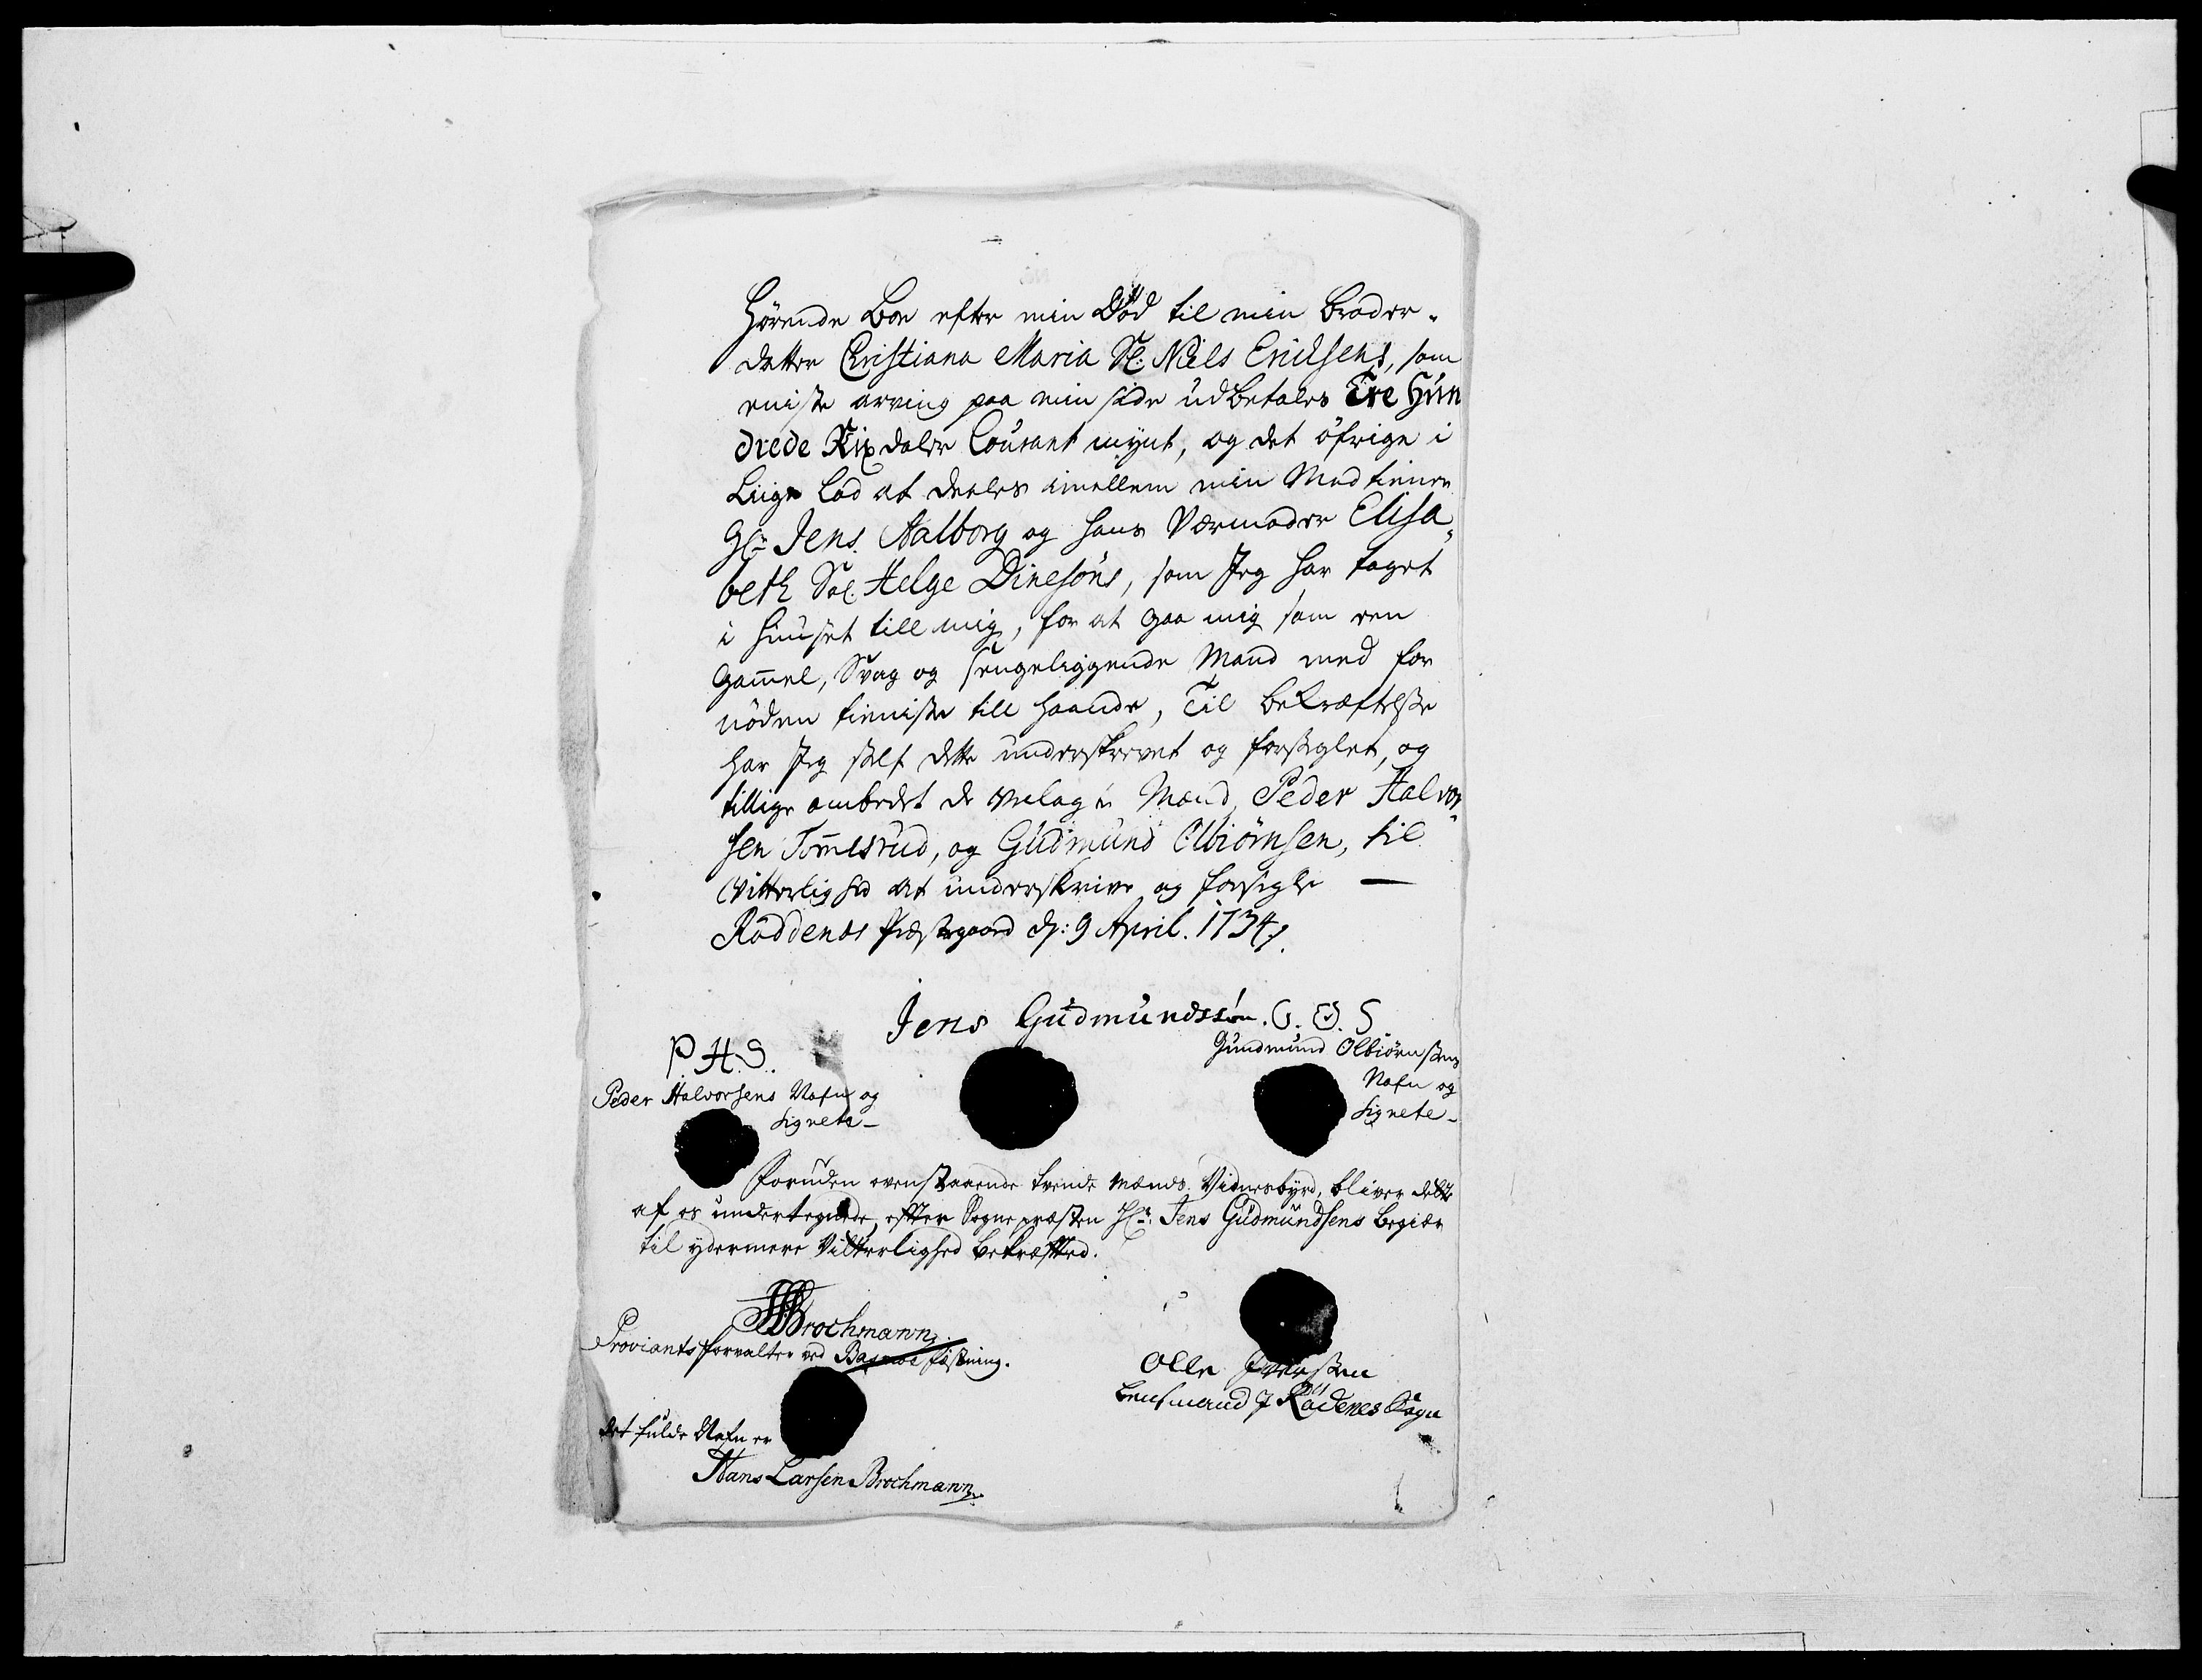 hörende Boe efter min Död til min broder-
datter Christiana Maria Sl: Niels Erichsens, som
eniste arving paa min side udbetales Tre Hun
drede Rixdaler Courant mynt, og det öfrige i
Liige Lod at deeles imellem min Medtiener
Hr. Jens Aalborg og hans Værmoder Elisa-
beth Sal. Helge Dinesöns, som Jeg har taget
i huuset till mig, for at gaa mig som een
gam̄el, Svag og sengeliggende Mand med for
nöden tieniste till haande, Til bekræftelse
har Jeg self dette underskrevet og forseglet, og
tillige ombedet de Mænd, Peder Halvor-
sen Tom̄esrud, og Gudmund Olbiörnsen, til
Vitterlighed at underskrive og forsegle —
Röddenes Præstegaard d: 9 April. 1734.
Jens Gudmundssön. G. O. S
P. H. S.
Gundmund Olbiörnssens
Peder Halvorsens Nafn og
Signete –
Nafn og
Signete –
Foruden ovenstaaende tvende Mænds Vidnesbyrd, bliver dette
af os undertegnede, efter Sognepræsten Hr. Jens Gudmundsens begiær
til ydermere Vitterlighed bekræfted.
HLBrochmann.
Proviantsforvalter ved Basmoe fæstning.
Olle Iverssen
Lensmand J Rödenes Sogn
det fulde Nafn er
Hans Larsen Brochmann